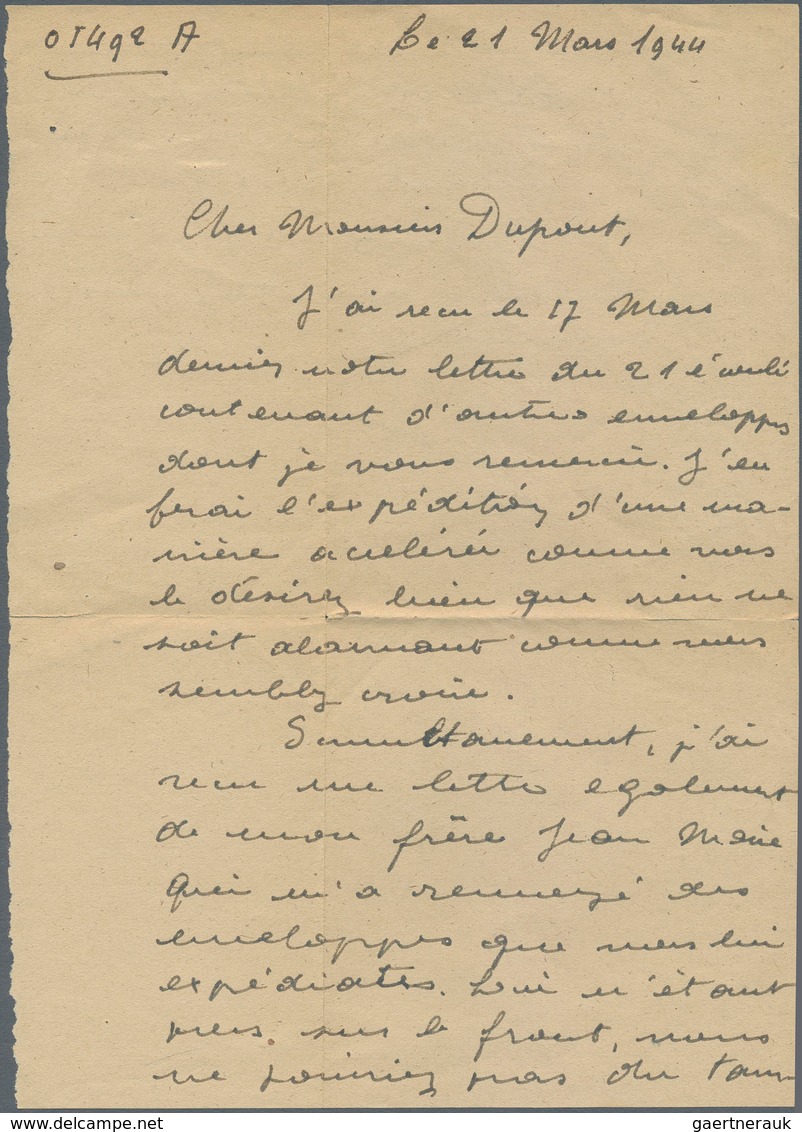 05492 A
Le 21 Mars 1944
Cher Monsieur Dupont,
J'ai recu le 17 Mars
dernier votre lettre du 21 écoulé
contenant d'autres enveloppes
dont je vous remercie. J'en
ferai l'expédition d'une ma-
nière accelérée comme vous
le désirez bien que rien ne
soit alarmant comme vous
semblez croire.
Simultanement, j'ai
recu une lettre egalement
de mon frère Jean Marie
qui m'a renvoyé des
enveloppes que vous lui
expédiates. Lui n'étant
plus sur le front, vous
ne pourriez pas du tam-
gaertnerauk @ delcampe.net